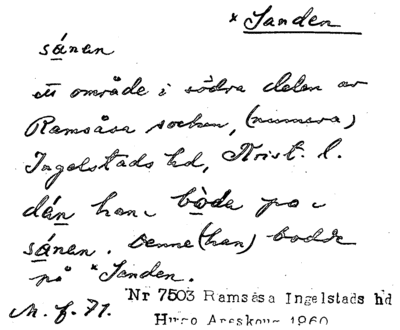 × Sanden
sánan
ett område i södra delen av
Ramsåsa socken, (numera)
Ingelstads hd, Krist. l.
dén han bòde pa
sánan. Denne (han) bodde
på × Sanden.
M. f. 71.
Nr 7503 Ramsåsa Ingelstads hd
Hugo Areskoug 1960